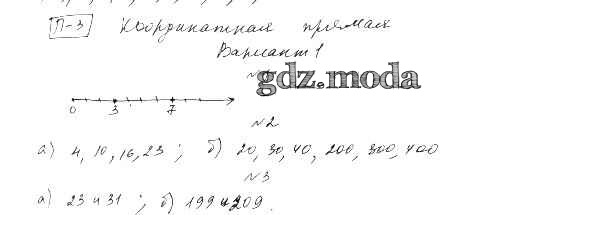 П-3 Координатная прямая
Вариант 1
gdz.moda
0 3 7
№2
а) 4, 10, 16, 23 ; б) 20, 30, 40, 200, 300, 400
№3
а) 23 и 31 ; б) 199 и 209.